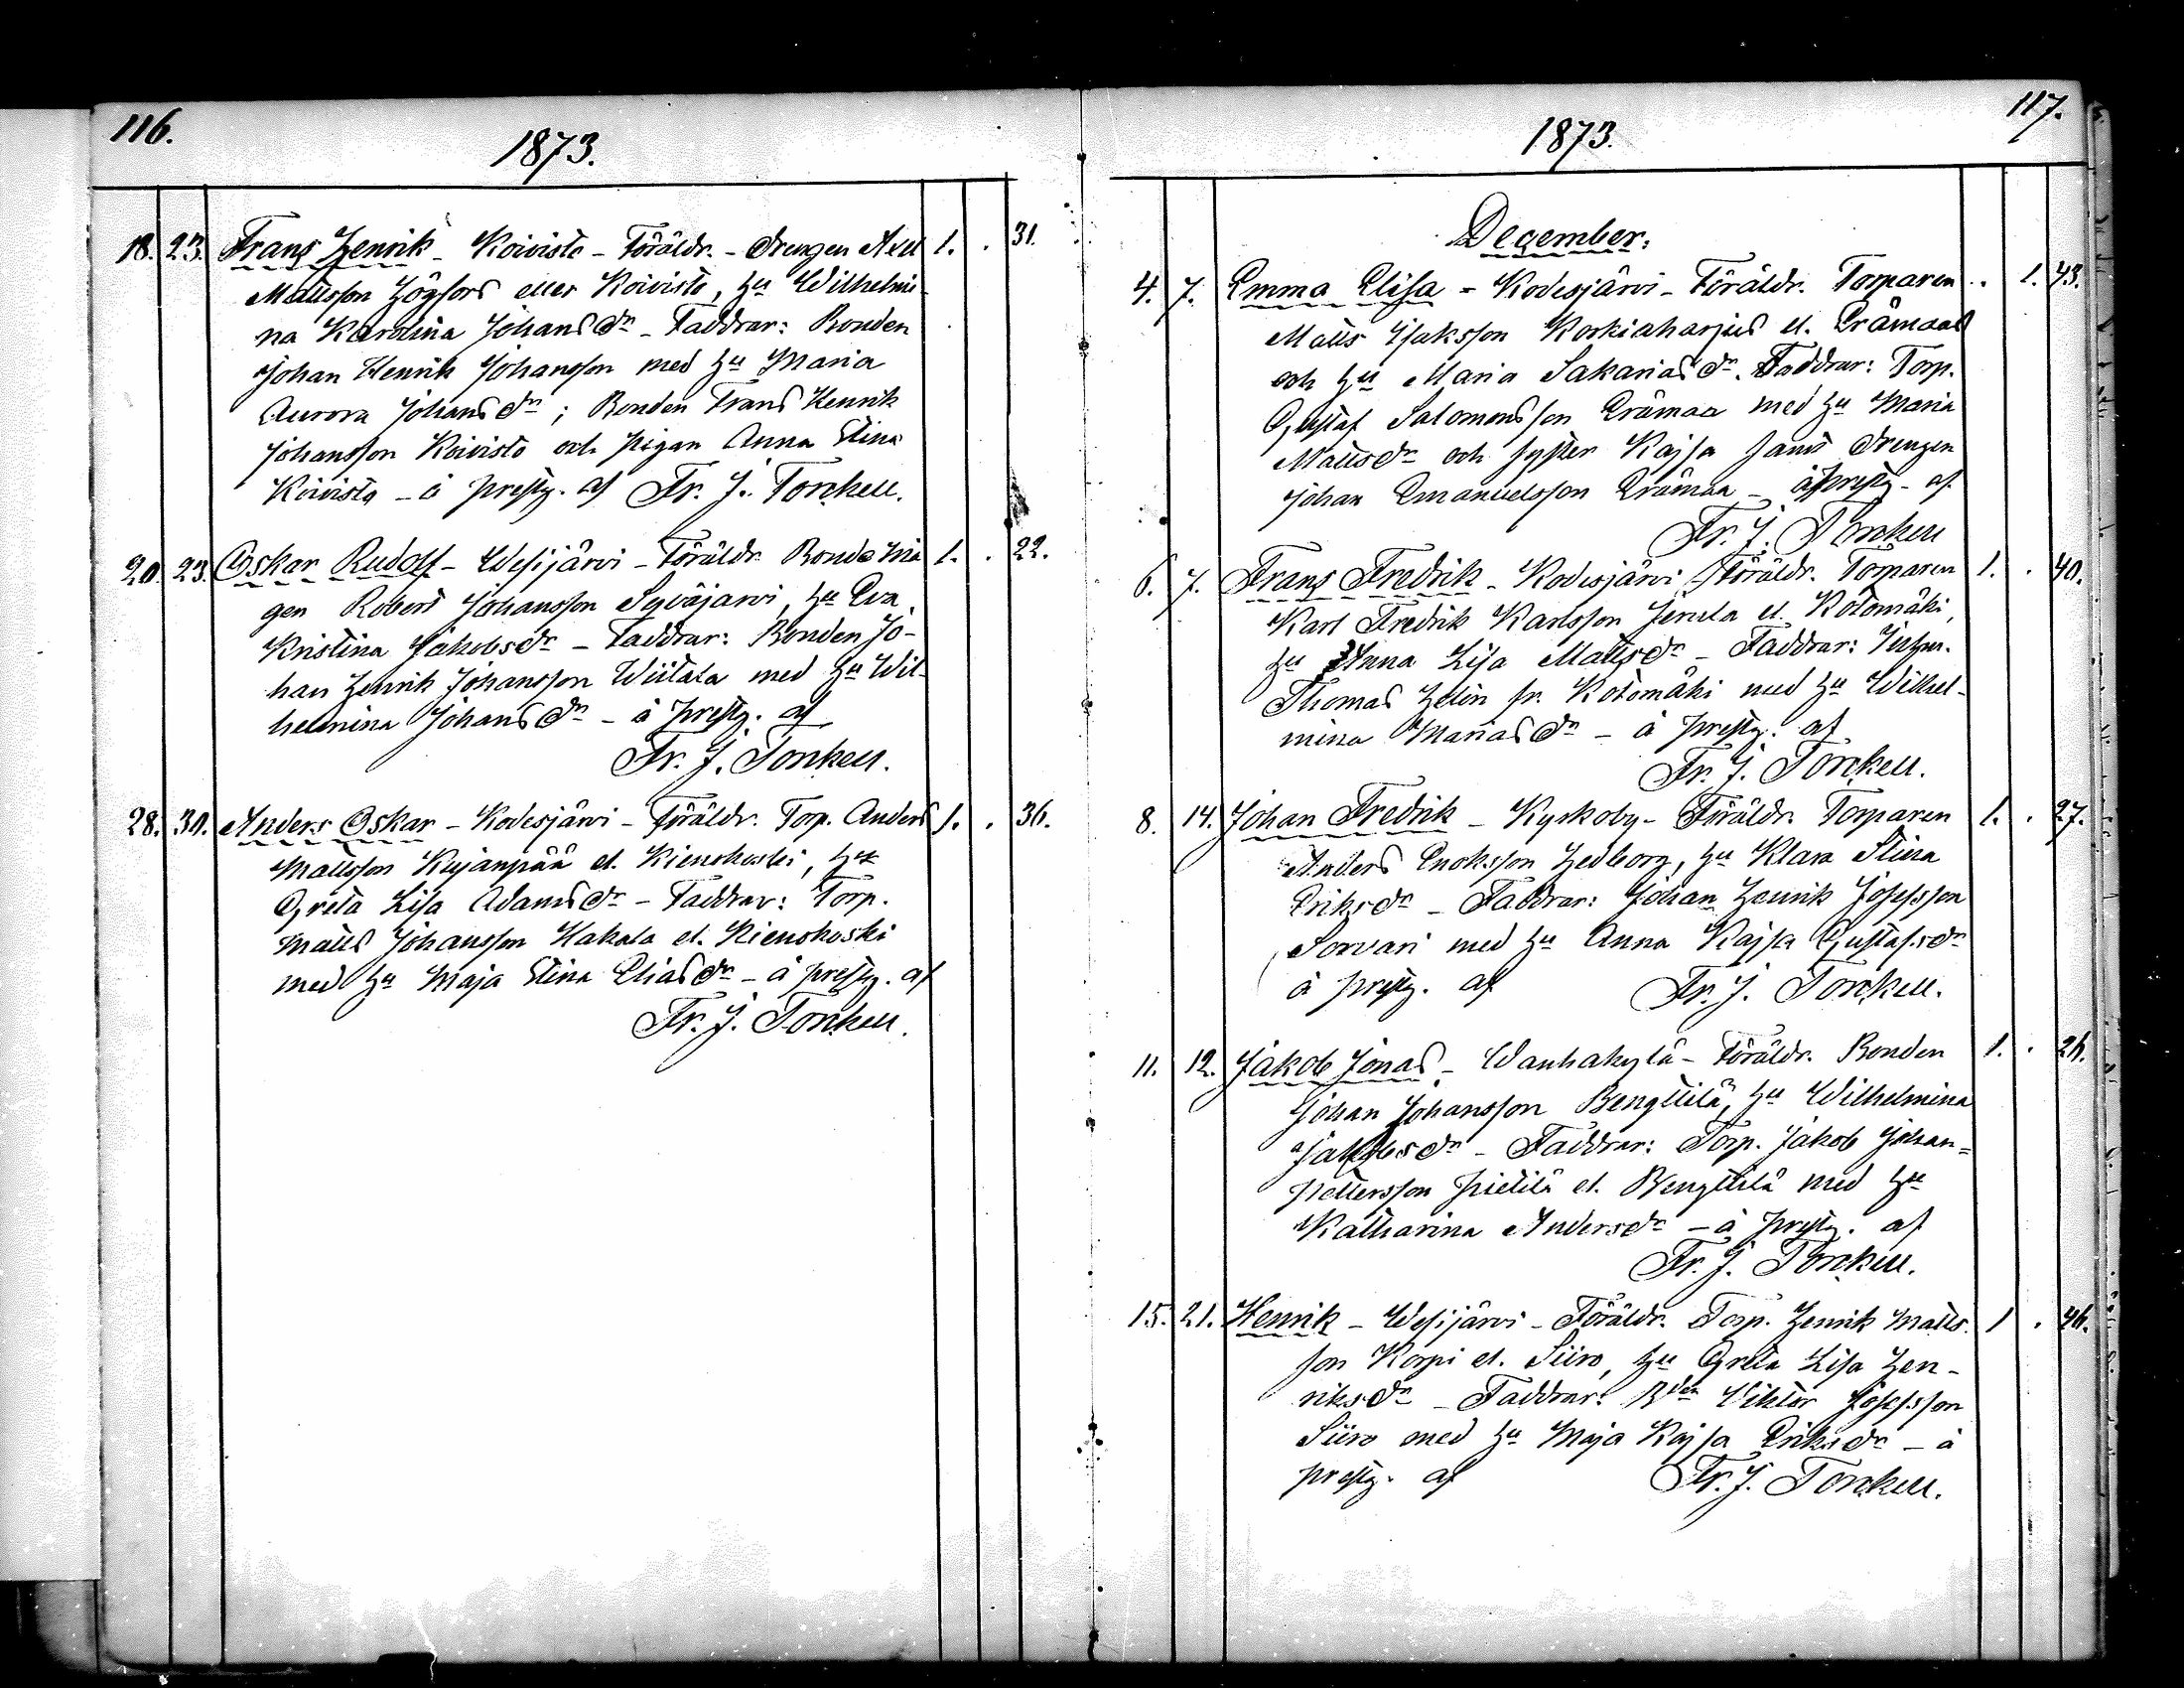 116.
1873.
18. 23. Frans Henrik - Koivisto - Föräldr. - Drengen Axel 1. . 31.
Mattsson Högfors eller Koivisto, hu Wilhelmi-
na Karolina Johansdr - Faddrar: Bonden
Johan Henrik Johansson med hu Maria
Aurora Johansdr; Bonden Frans Henrik
Johansson Koivisto och pigan Anna Stina
Koivisto - å prestg. af Fr. J. Torckell.
20. 23. Oskar Rudolf - Wesijärvi - Föräldr. Bonde Må 1. . 22.
gen Robert Johansson Syväjärvi, hu Eva
Kristina Jakobsdr - Faddrar: Bonden Jo-
han Henrik Johansson Wiitala med hu Wil-
helmina Johansdr - å prestg. af
Fr. J. Torckell.
28. 30. Anders Oskar - Kodesjärvi - Föräldr. Torp. Anders 1. . 36.
Mattsson Kujanpää el. Kienokoski, hu
Greta Lisa Adamsdr - Faddrar: Torp.
Matts Johansson Hakala el. Kienokoski
med hu Maja Stina Eliasdr - å prestg. af
Fr. J. Torckell.
117.
1873.
December.
4. 7. Emma Elisa - Kodesjärvi - Föräldr. Torparen . 1. 43.
Matts Isaksson Koskiaharjus el. Erämaas
och hu Maria Sakariasdr. Faddrar: Torp.
Gustaf Salomonsson Erämaa med hu Maria
Mattsdr och syster Kajsa samt drengen
Johan Emanuelsson Erämaa - å prestg. af
Fr. J. Torckell
6. 7. Frans Fredrik - Kodesjärvi - Föräldr. Torparen 1. . 40.
Karl Fredrik Karlsson el. Kotomäki,
hu Anna Lisa Mattsdr - Faddrar:
Thomas Helin fr. Kotomäki med hu Wilhel-
mina Mariasdr - å prestg. af
Fr. J. Torckell.
8. 14. Johan Fredrik - Kyrkoby - Föräldr. Torparen 1. . 27.
Anders Enoksson Hedborg, hu Klara Stina
Eriksdr - Faddrar: Johan Henrik Josefsson
Sorvari med hu Anna Kajsa Gustafsdr
å prestg. af Fr. J. Torckell.
11. 12. Jakob Jonas - Wanhakylä - Föräldr. Bonden 1. . 26.
Johan Johansson Bengttilä, hu Wilhelmina
Jakobsdr - Faddrar: Torp. Jakob Johan=
Pettersson Pietilä el. Bengttilä med hu
Katharina Andersdr - å prestg. af
Fr. J. Torckell.
15. 21. Henrik - Wesijärvi - Föräldr. Torp. Henrik Matts- 1 . 46.
son Korpi el. Siiro, hu Greta Lisa Hen-
riksdr - Faddrar: Bden Viktor Josefsson
Siiro med hu Maja Kajsa Eriksdr - å
prestg. af Fr. J. Torckell.